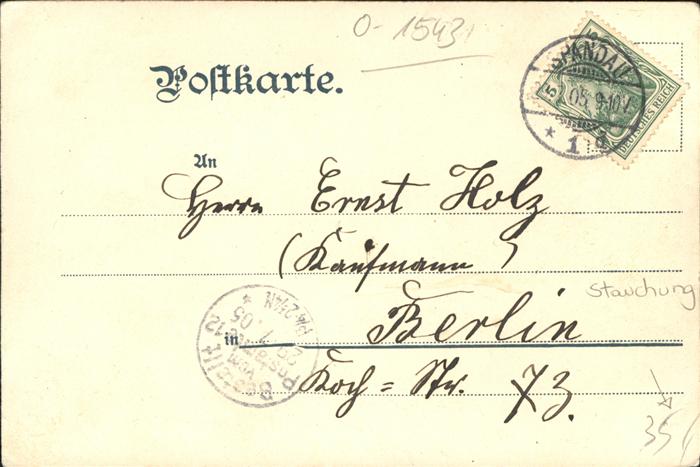 0-15431
Postkarte.
SPANDAU
05. 9-10V.
* 1 d
5
DEUTSCHES REICH
An
Herrn Ernst Holz
(Kaufmann)
Stauchung
Berlin
in
Koch=Str. 73.
Bestellt
vom
Postamte
12
05
35